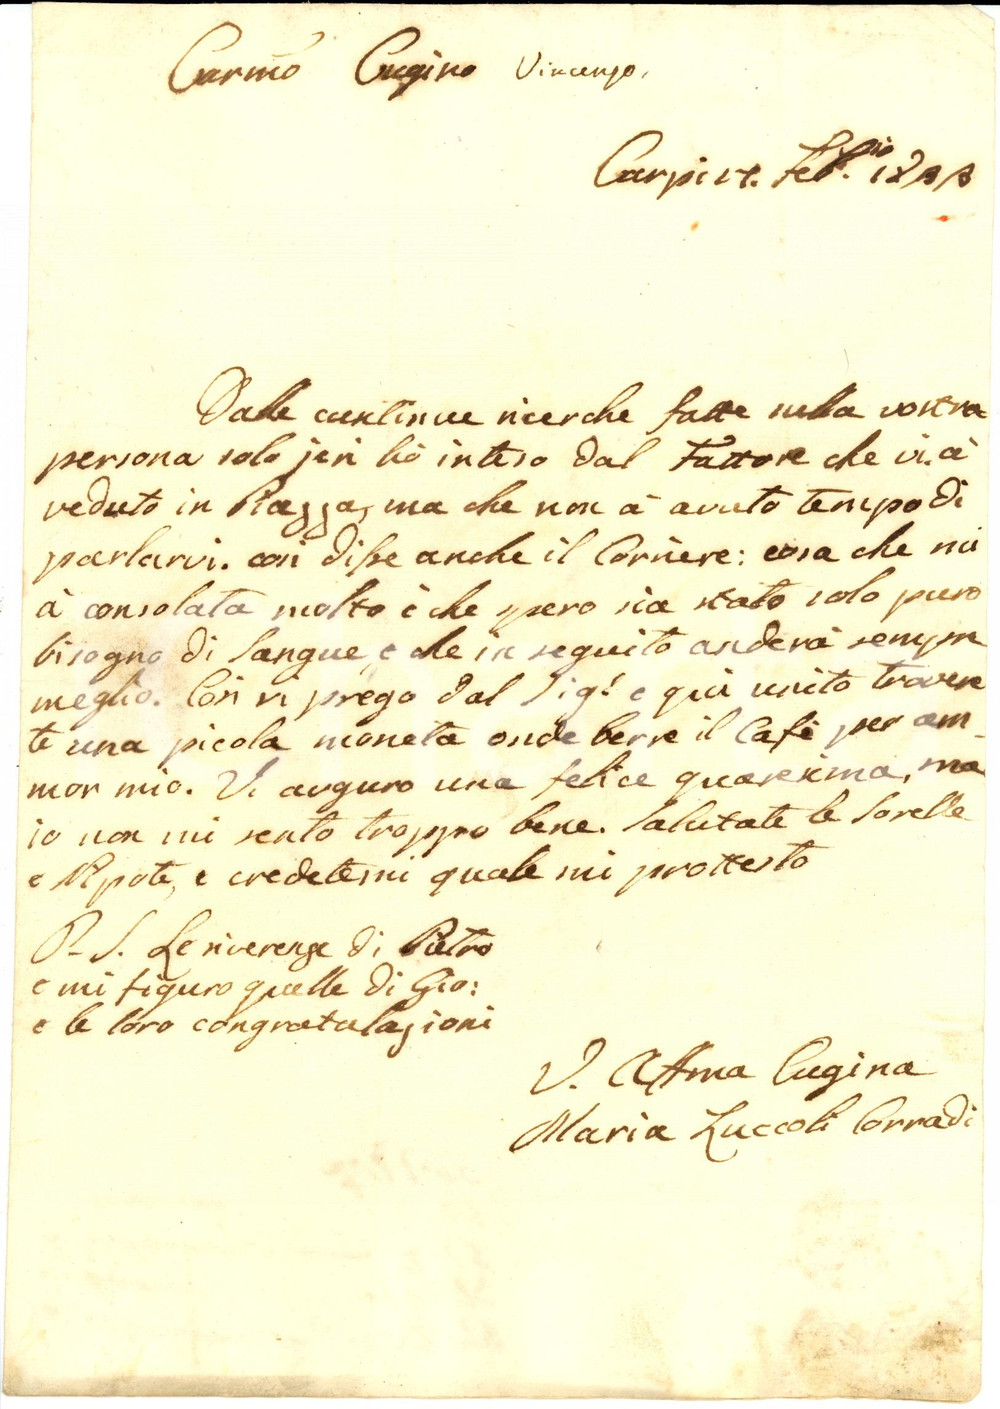 Carmo Cugino Vincenzo.
Carpi 17. Feb.rio 1833
Dalle continue ricerche fatte nella vostra
persona solo jeri hò inteso dal Fattore che vi. à
veduto in Piazza, ma che non à avuto tempo di
parlarvi. così disse anche il Corriere: cosa che mi
à consolata molto è che spero sia stato solo puro
bisogno di Sangue, e che in seguito anderà sempre
meglio. Così vi prego dal Sig.r e quì unito trovere
te una picola moneta onde berre il Cafè per am-
mor mio. Vi auguro una felice quaresima, ma
io non mi sento troppo bene. Salutate le Sorelle
e Nipote, e credetemi quale mi prottesto
P. S. Le riverenze di Pietro
e mi figuro quelle di Gio:
e le loro congratulazioni
V. Affma Cugina
Maria Luccoli Corradi